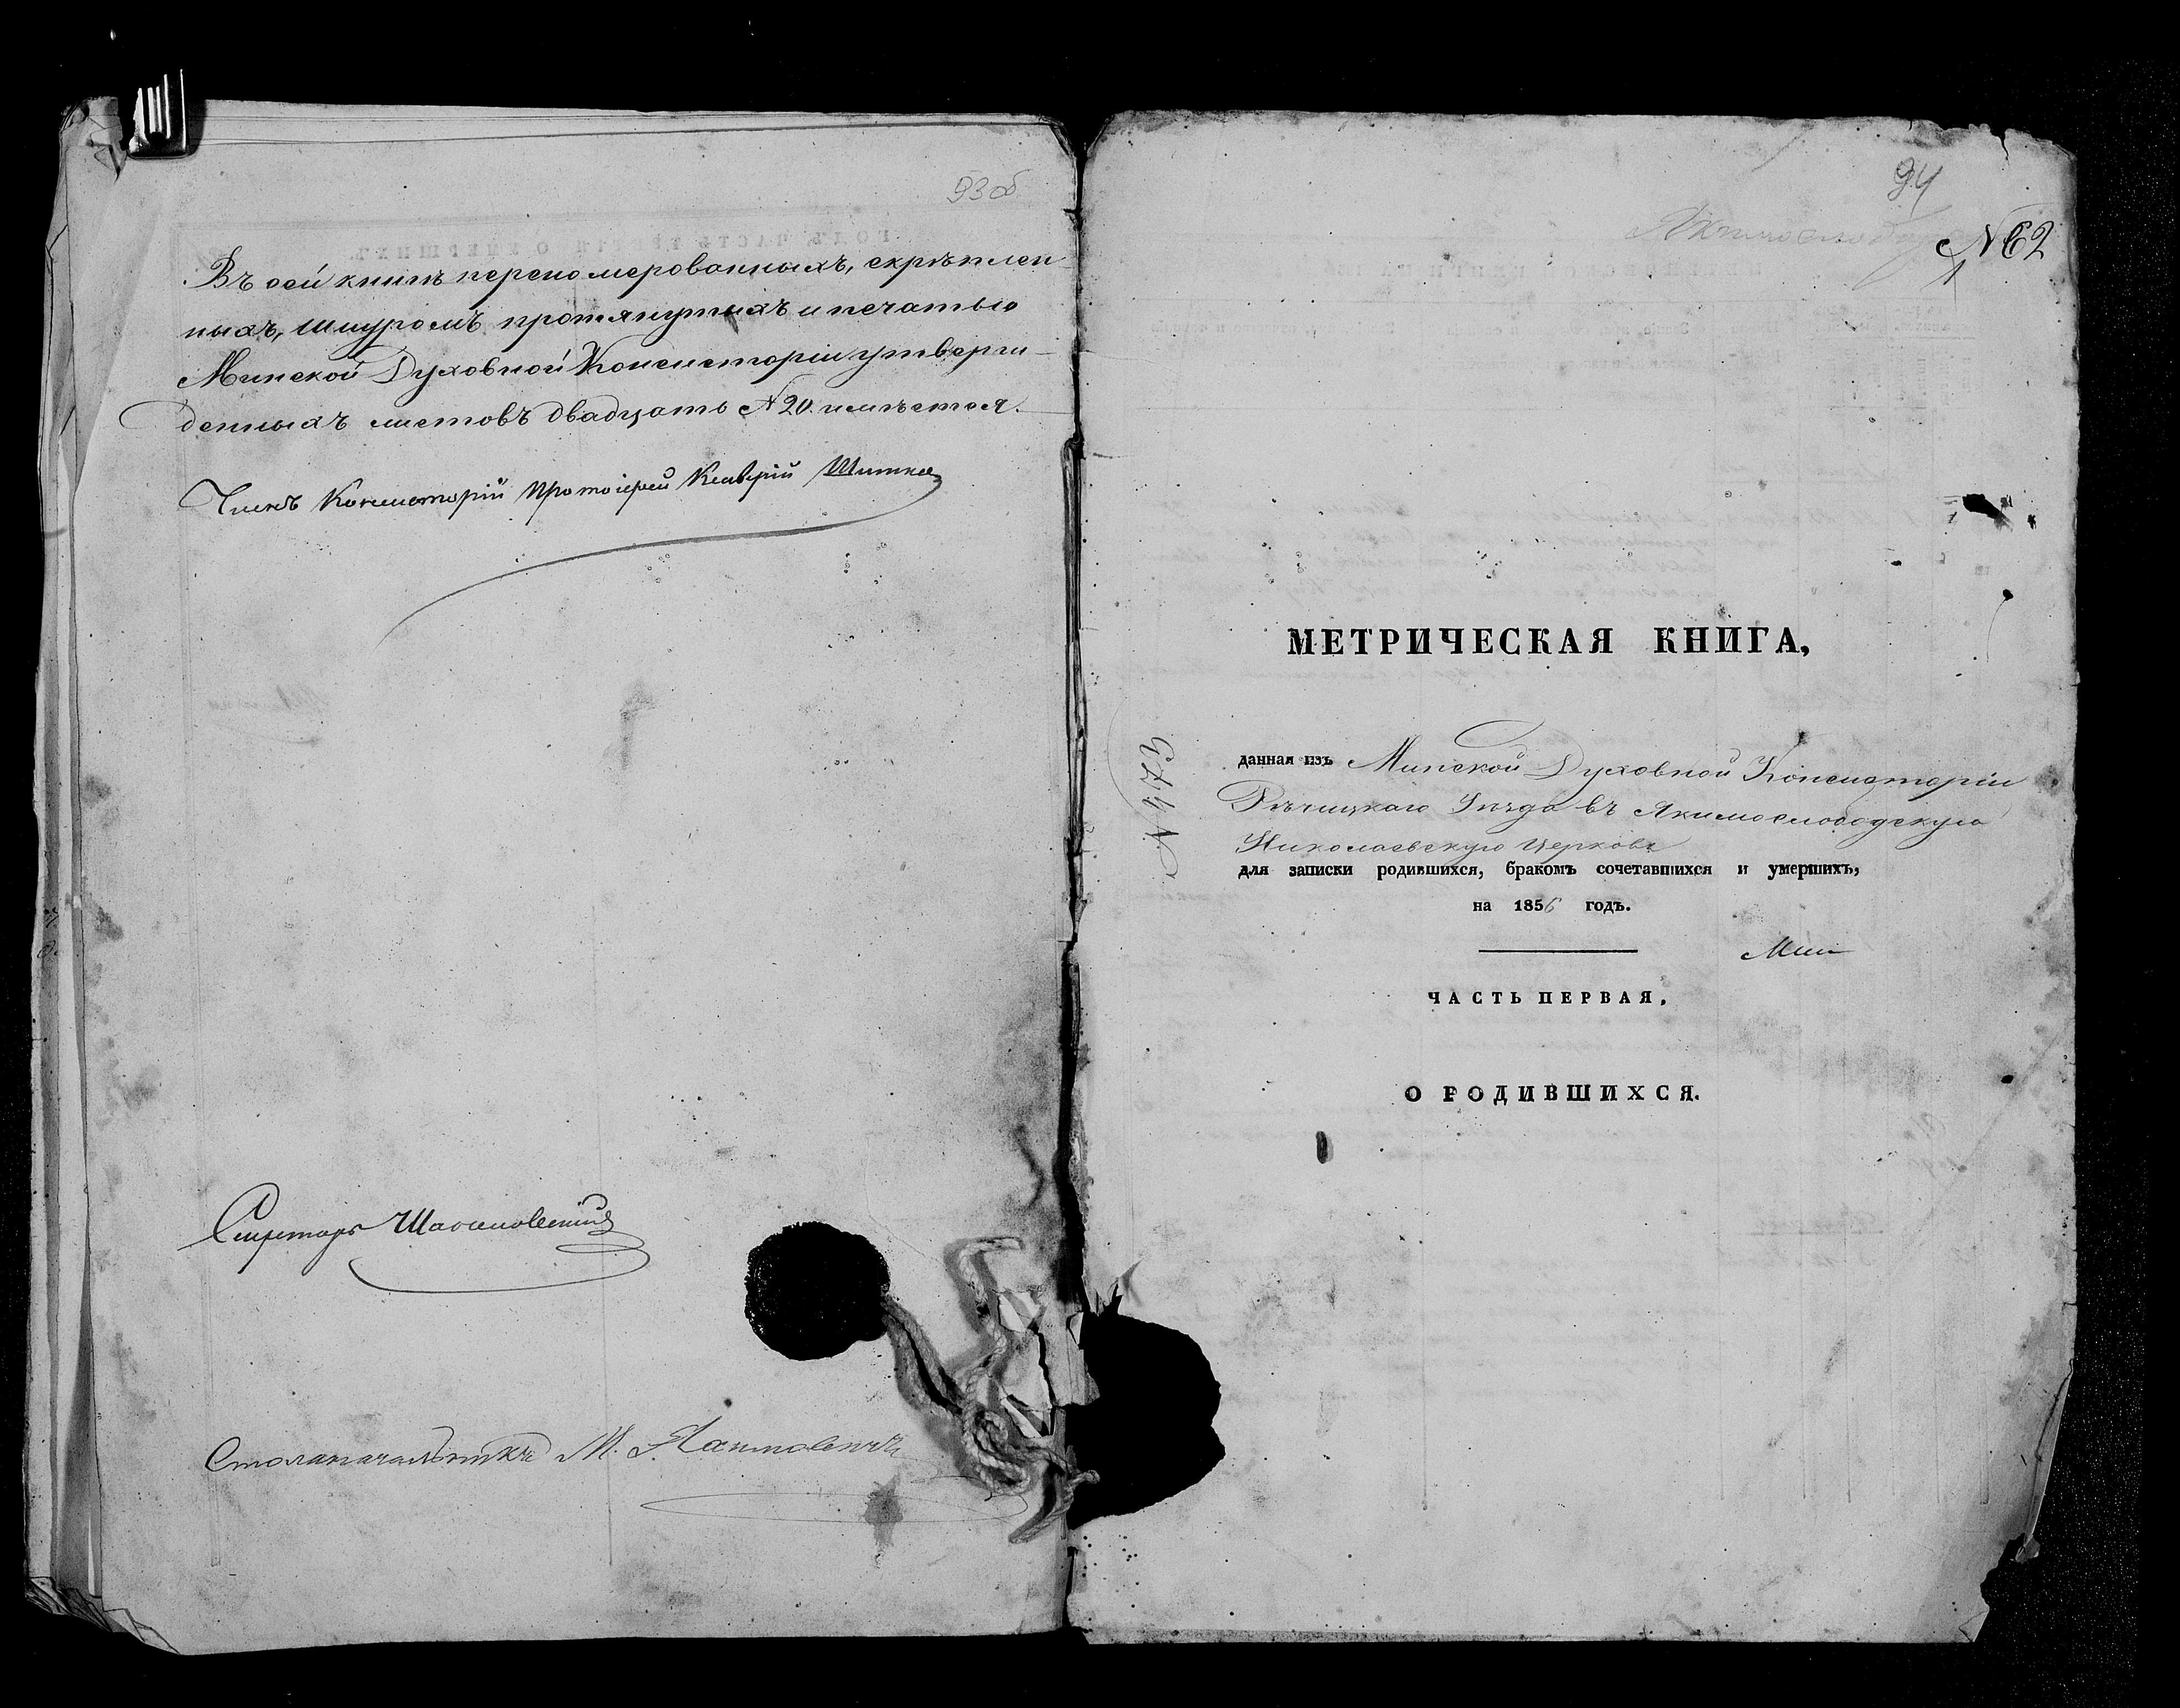 93об
Въ сей книгѣ переномерованныхъ, скрѣплен-
ныхъ, шнуромъ протянутыхъ и печатью
Минской Духовной Консисторіи утверж-
денныхъ листовъ двадцать № 20. имѣется.
Членъ Консисторій Протоіерей
Секретарь
Столаначальникъ М.
94
№ 62
1
МЕТРИЧЕСКАЯ КНИГА,
№ 473
данная изъ Минской Духовной Консисторіи
Рѣчицкаго Уѣзда въ Якимослободскую
Николаевскую Церковь
для записки родившихся, бракомъ сочетавшихся и умершихъ,
на 1856 годъ.
Мин-
ЧАСТЬ ПЕРВАЯ,
О РОДИВШИХСЯ.